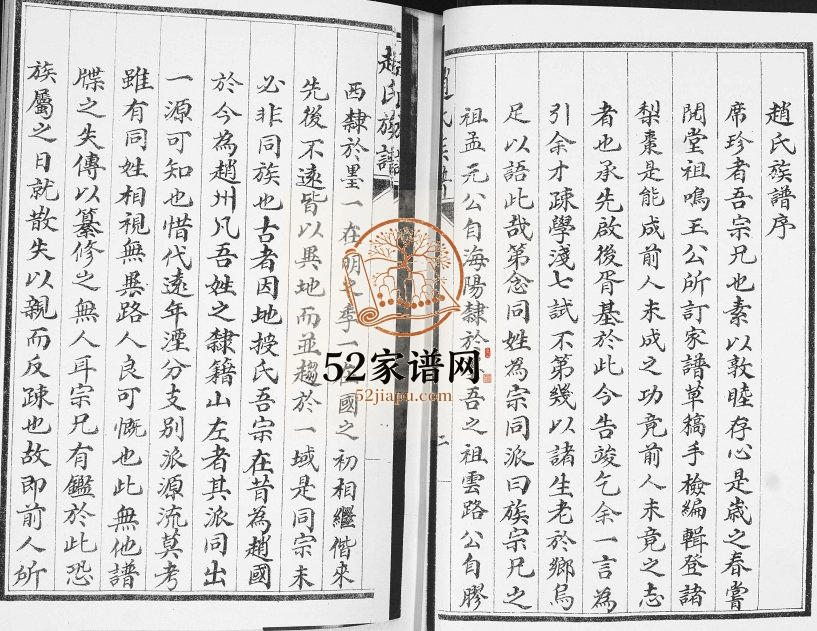 趙氏族譜序
席珍者吾宗兄也素以敦睦存心是歲之春嘗
閱堂祖鳴玉公所訂家譜草稿手檢編輯登諸
梨棗是能成前人未成之功竟前人未竟之志
者也承先啟後胥基於此今告竣乞余一言為
引余才疎學淺七試不第幾以諸生老於鄉烏
足以語此哉第念同姓為宗同派曰族宗兄之
祖孟元公自海陽隸於吾之祖雲路公自膠
二
趙氏族譜
西隸於墨一在明之季一在國之初相繼偕來
先後不遠皆以異地而並趨於一域是同宗未
必非同族也古者因地授氏吾宗在昔為趙國
於今為趙州凡吾姓之隸籍山左者其派同出
一源可知也惜代遠年湮分支別派源流莫考
雖有同姓相視無異路人良可慨也此無他譜
牒之失傳以纂修之無人耳宗兄有鑑於此恐
族屬之日就散失以親而反疎也故即前人所
52家谱网
52jiapu.com